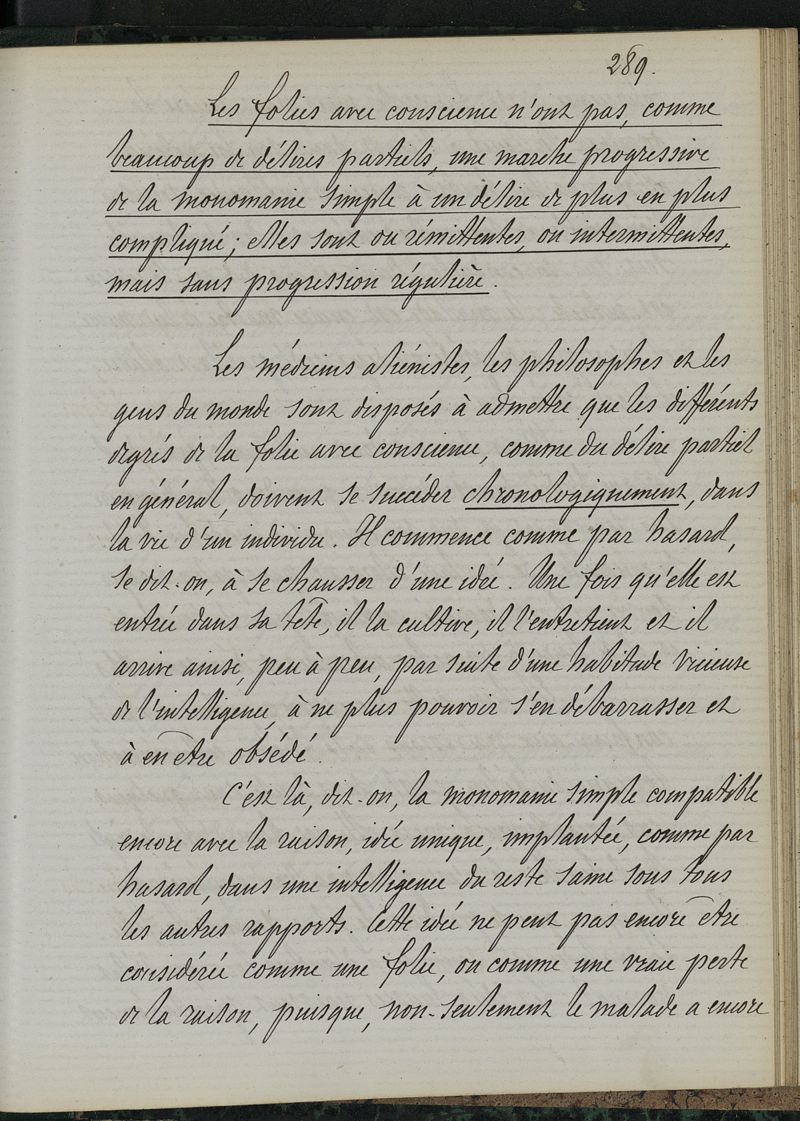 289.
Les folies avec conscience n'ont pas, comme
beaucoup de délires partiels, une marche progressive
de la monomanie simple à un délire de plus en plus
compliqué; elles sont ou rémittentes, ou intermittentes,
mais sans progression régulière.
Les médecins aliénistes, les philosophes et les
gens du monde sont disposés à admettre que les différents
degrés de la folie avec conscience, comme du délire partiel
en général, doivent se succéder chronologiquement, dans
la vie d'un individu. Il commence comme par hasard,
se dit-on, à se chausser d'une idée. Une fois qu'elle est
entrée dans sa tête, il la cultive, il l'entretient et il
arrive ainsi, peu à peu, par suite d'une habitude vicieuse
de l'intelligence, à ne plus pouvoir s'en débarrasser et
à en être obsédé.
C'est là, dit-on, la monomanie simple compatible
encore avec la raison, idée unique, implantée, comme par
hasard, dans une intelligence du reste saine sous tous
les autres rapports. Cette idée ne peut pas encore être
considérée comme une folie, ou comme une vraie perte
de la raison, puisque, non-seulement le malade a encore